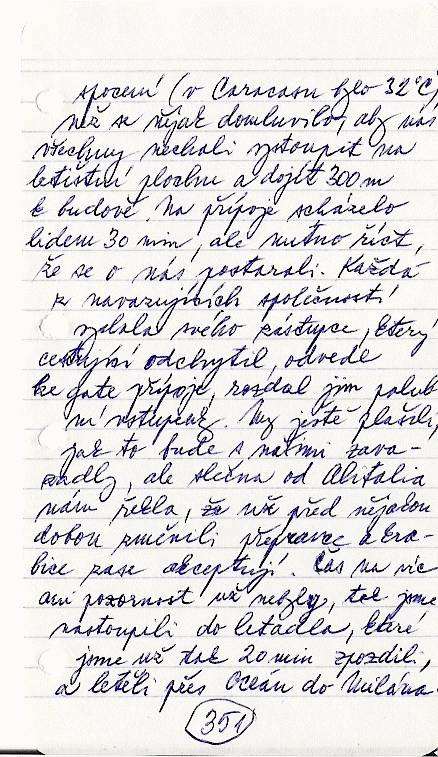 spocení (v Caracasu bylo 32°C),
než se nějak domluvilo, aby nás
všechny nechali vstoupit na
letištní plochu a dojít 300 m
k budově. Na přípoje scházelo
lidem 30 min, ale nutno říct,
že se o nás postarali. Každá
z navazujících společností
vyslala svého zástupce, který
cestující odchytil, odvede
ke gate přípoje, rozdal jim palub
ní vstupenk. My ještě plašili,
jak to bude s našimi zava-
zadly, ale slečna od Alitalia
nám řekla, že už před nějakou
dobou změnili přepravce a kra-
bice zase akceptují. Čas na víc
ani pozornost už nebyly, tak jsme
nastoupili do letadla, které
jsme už tak 20 min zpozdili,
a letěli přes Oceán do Milána.
351